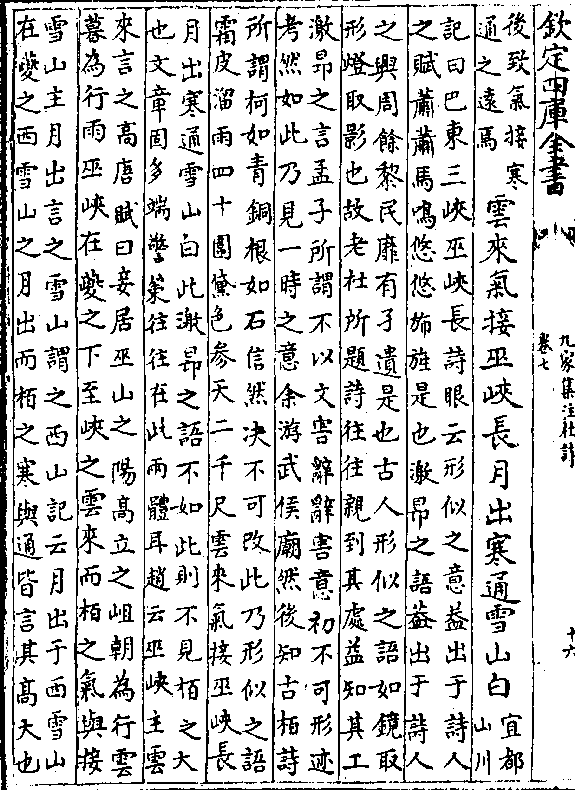 欽定四庫全書
後致氣接寒
通之遠馬
雲來氣接巫峽長月出寒通雪山白
宜都
山川
記曰巴東三峽巫峽長詩眼云形似之意益出于詩人
之賦蕭蕭馬鳴悠悠斾旌是也激昂之語葢出于詩人
之興周餘黎民靡有孑遺是也古人形似之語如鏡取
形燈取影也故老杜所題詩往往親到其處益知其工
激昂之言孟子所謂不以文害辭辭害意初不可形迹
考然如此乃見一時之意余游武侯廟然後知古栢詩
所謂柯如青銅根如石信然決不可改此乃形似之語
霜皮溜雨四十圍黛色參天二千尺雲來氣接巫峽長
月出寒通雪山白此激昂之語不如此則不見栢之大
也文章固多端警䇿往往在此兩體耳趙云巫峽主雲
來言之高唐賦曰妾居巫山之陽高立之岨朝為行雲
暮為行雨巫峽在夔之下至峽之雲來而栢之氣與接
雪山主月出言之雪山謂之西山記云月出于西雪山
在夔之西雪山之月出而栢之寒與通皆言其高大也
九家集注杜詩
卷七
十六